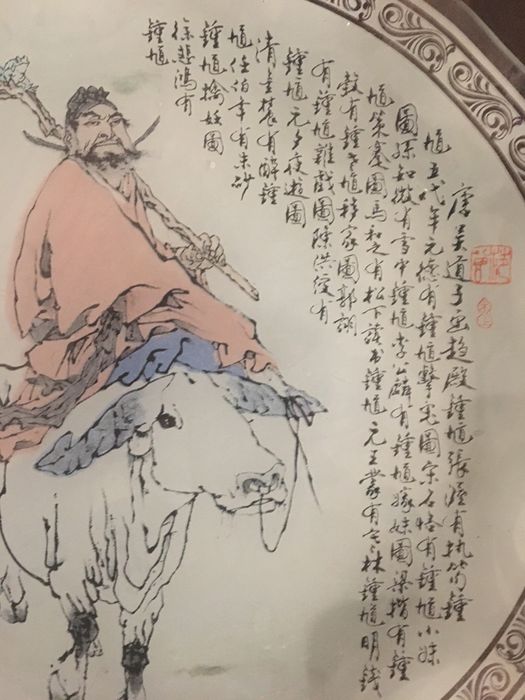 唐吴道子画趋殿鍾馗張渥有执笏鍾
馗五代牟元德有鍾馗擊鬼圖宋石恪有鍾馗小妹
圖孫知微有雪中鍾馗李公麟有鍾馗嫁妹圖梁楷有鍾
馗策蹇圖馬和之有松下讀书鍾馗元王蒙有寒林鍾馗明錢
穀有鍾老馗移家圖郭詡
有鍾馗雜戲圖陳洪綬有
鍾馗元夕夜遊圖
清金農有醉鍾
馗任伯年有朱砂
鍾馗擒妖圖
徐悲鴻有
鍾馗